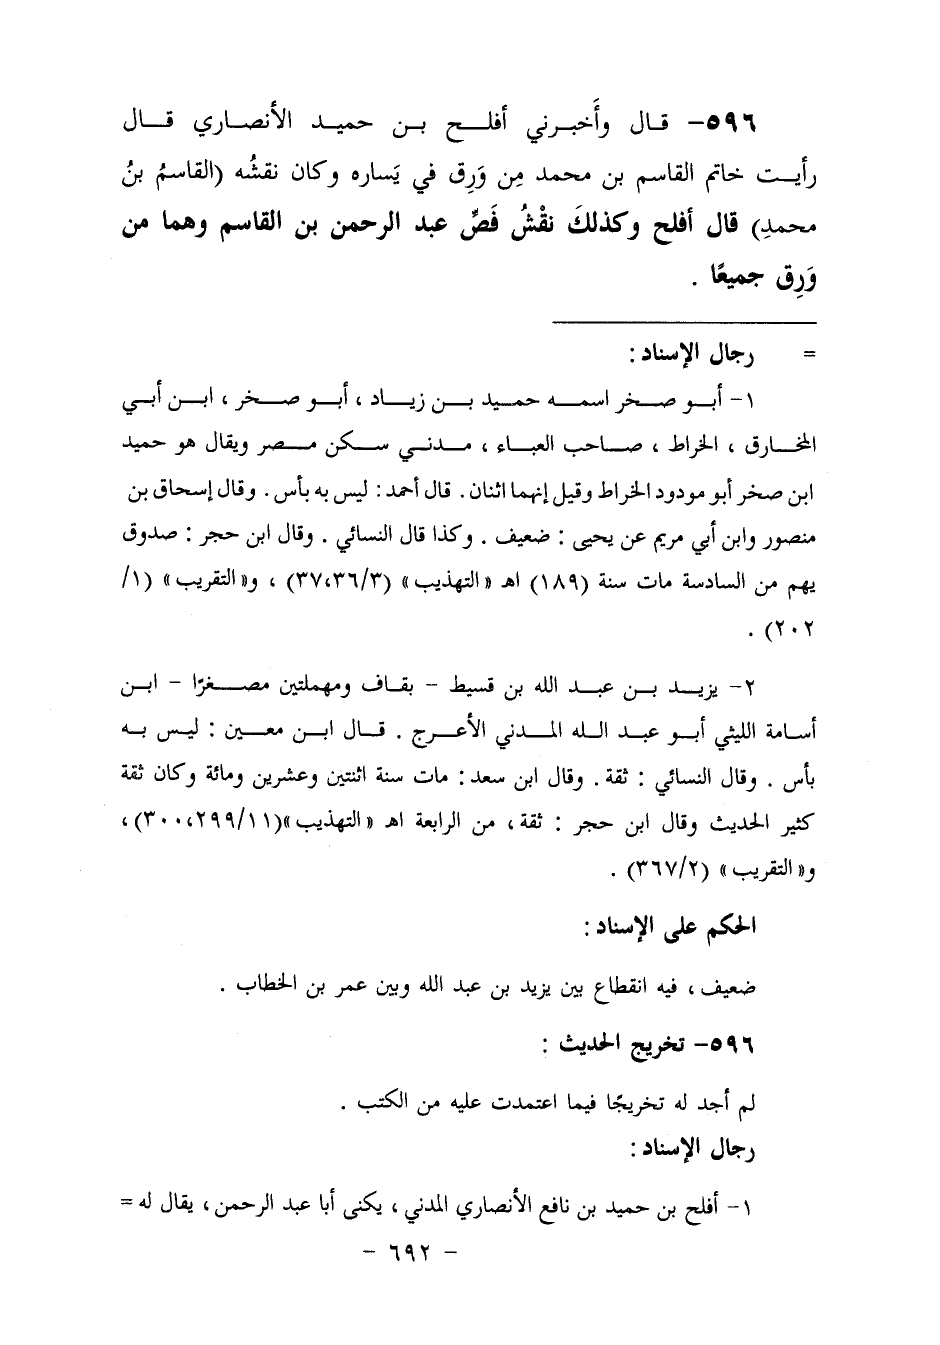 ٥٩٦- قال وأَخبرني أفلح بن حميد الأنصاري قال
رأيت خاتم القاسم بن محمد مِن وَرِق في يَساره وكان نقشُه (القاسمُ بنُ
محمدِ) قال أفلح وكذلكَ نقْشُ فَصِّ عبد الرحمن بن القاسم وهما من
وَرِق جميعًا .
= رجال الإسناد :
١- أبو صخر اسمه حميد بن زياد ، أبو صخر ، ابن أبي
المخارق ، الخراط ، صاحب العباء ، مدني سكن مصر ويقال هو حميد
ابن صخر أبو مودود الخراط وقيل إنهما اثنان . قال أحمد : ليس به بأس . وقال إسحاق بن
منصور وابن أبي مريم عن يحيى : ضعيف . وكذا قال النسائي . وقال ابن حجر : صدوق
يهم من السادسة مات سنة (١٨٩) اهـ «التهذيب» (٣٧،٣٦/٣) ، و«التقريب» (١/
٢٠٢) .
٢- يزيد بن عبد الله بن قسيط - بقاف ومهملتين مصغرًا - ابن
أسامة الليثي أبو عبد الله المدني الأعرج . قال ابن معين : ليس به
بأس . وقال النسائي : ثقة . وقال ابن سعد : مات سنة اثنتين وعشرين ومائة وكان ثقة
كثير الحديث وقال ابن حجر : ثقة ، من الرابعة اهـ «التهذيب»(٣٠٠،٢٩٩/١١)،
و«التقريب» (٣٦٧/٢) .
الحكم على الإسناد :
ضعيف ، فيه انقطاع بين يزيد بن عبد الله وبين عمر بن الخطاب .
٥٩٦- تخريج الحديث :
لم أجد له تخريجًا فيما اعتمدت عليه من الكتب .
رجال الإسناد :
١- أفلح بن حميد بن نافع الأنصاري المدني ، يكنى أبا عبد الرحمن ، يقال له =
- ٦٩٢ -